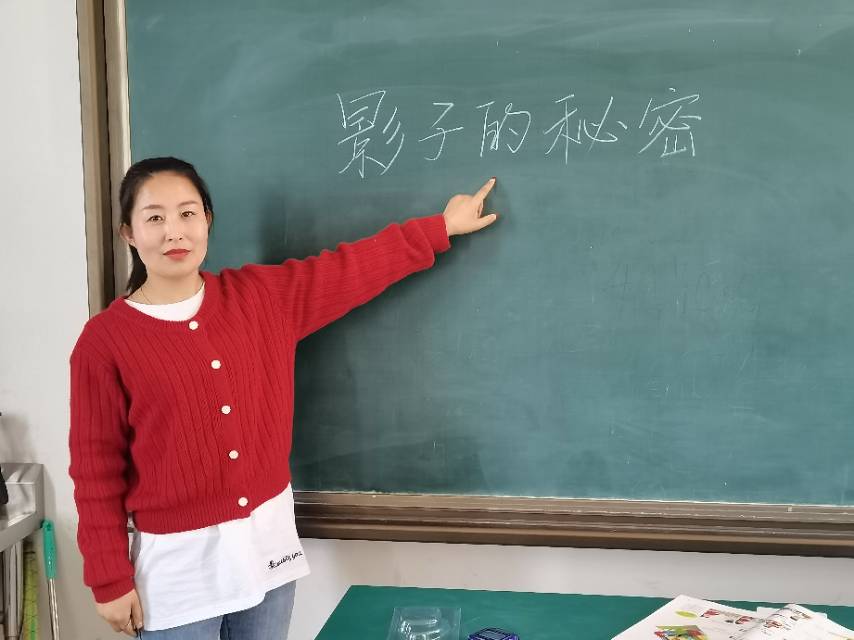 影子的秘密